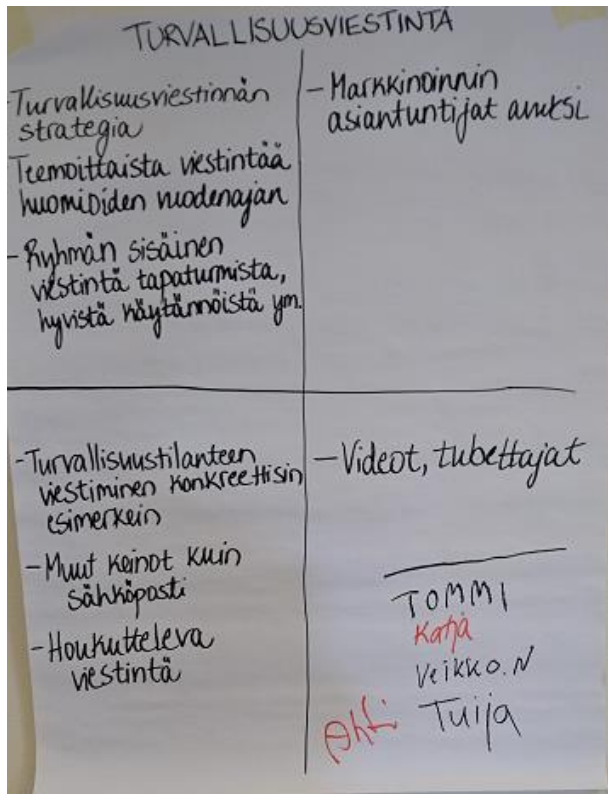 TURVALLISUUSVIESTINTÄ
- Turvallisuusviestinnän
strategia
Teemoittaista viestintää
huomioiden vuodenajan
- Ryhmän sisäinen
viestintä tapaturmista,
hyvistä käytännöistä ym.
- Markkinoinnin
asiantuntijat avuksi
- Turvallisuustilanteen
viestiminen konkreettisin
esimerkein
- Muut keinot kuin
sähköposti
- Houkutteleva
viestintä
- Videot, tubettajat
TOMMI
Katja
Veikko.N
Tuija
Ahti